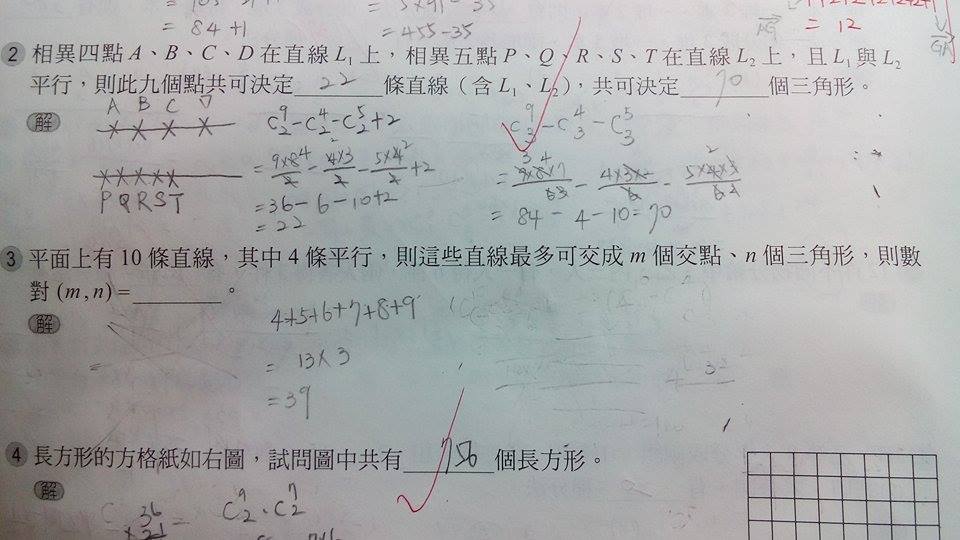 = 84 + 1
= 455 - 35
= 12
2 相異四點 A、B、C、D 在直線 L₁ 上，相異五點 P、Q、R、S、T 在直線 L₂ 上，且 L₁ 與 L₂
平行，則此九個點共可決定 22 條直線（含 L₁、L₂），共可決定 70 個三角形。
解
A B C D
P Q R S T
C⁹₂-C⁴₂-C⁵₂+2
= 9×8/2 - 4×3/2 - 5×4/2 + 2
= 36 - 6 - 10 + 2
= 22
C⁹₃-C⁴₃-C⁵₃
= 84 - 4 - 10 = 70
3 平面上有 10 條直線，其中 4 條平行，則這些直線最多可交成 m 個交點、n 個三角形，則數
對 (m , n) = ________。
解
4+5+6+7+8+9
= 13×3
= 39
4 長方形的方格紙如右圖，試問圖中共有 756 個長方形。
解
36
×21
= C⁹₂ · C⁷₂